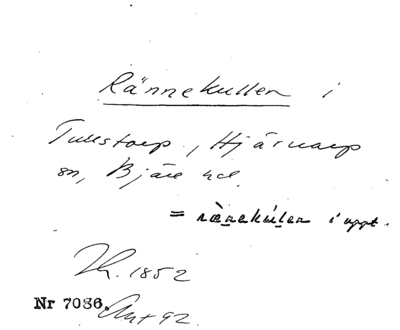 Rännekullen i
Tullstorp, Hjärnarp
sn, Bjäre hd.
= rànekúlen i uppt.
Th. 1852
Nr 7036. Ant 92